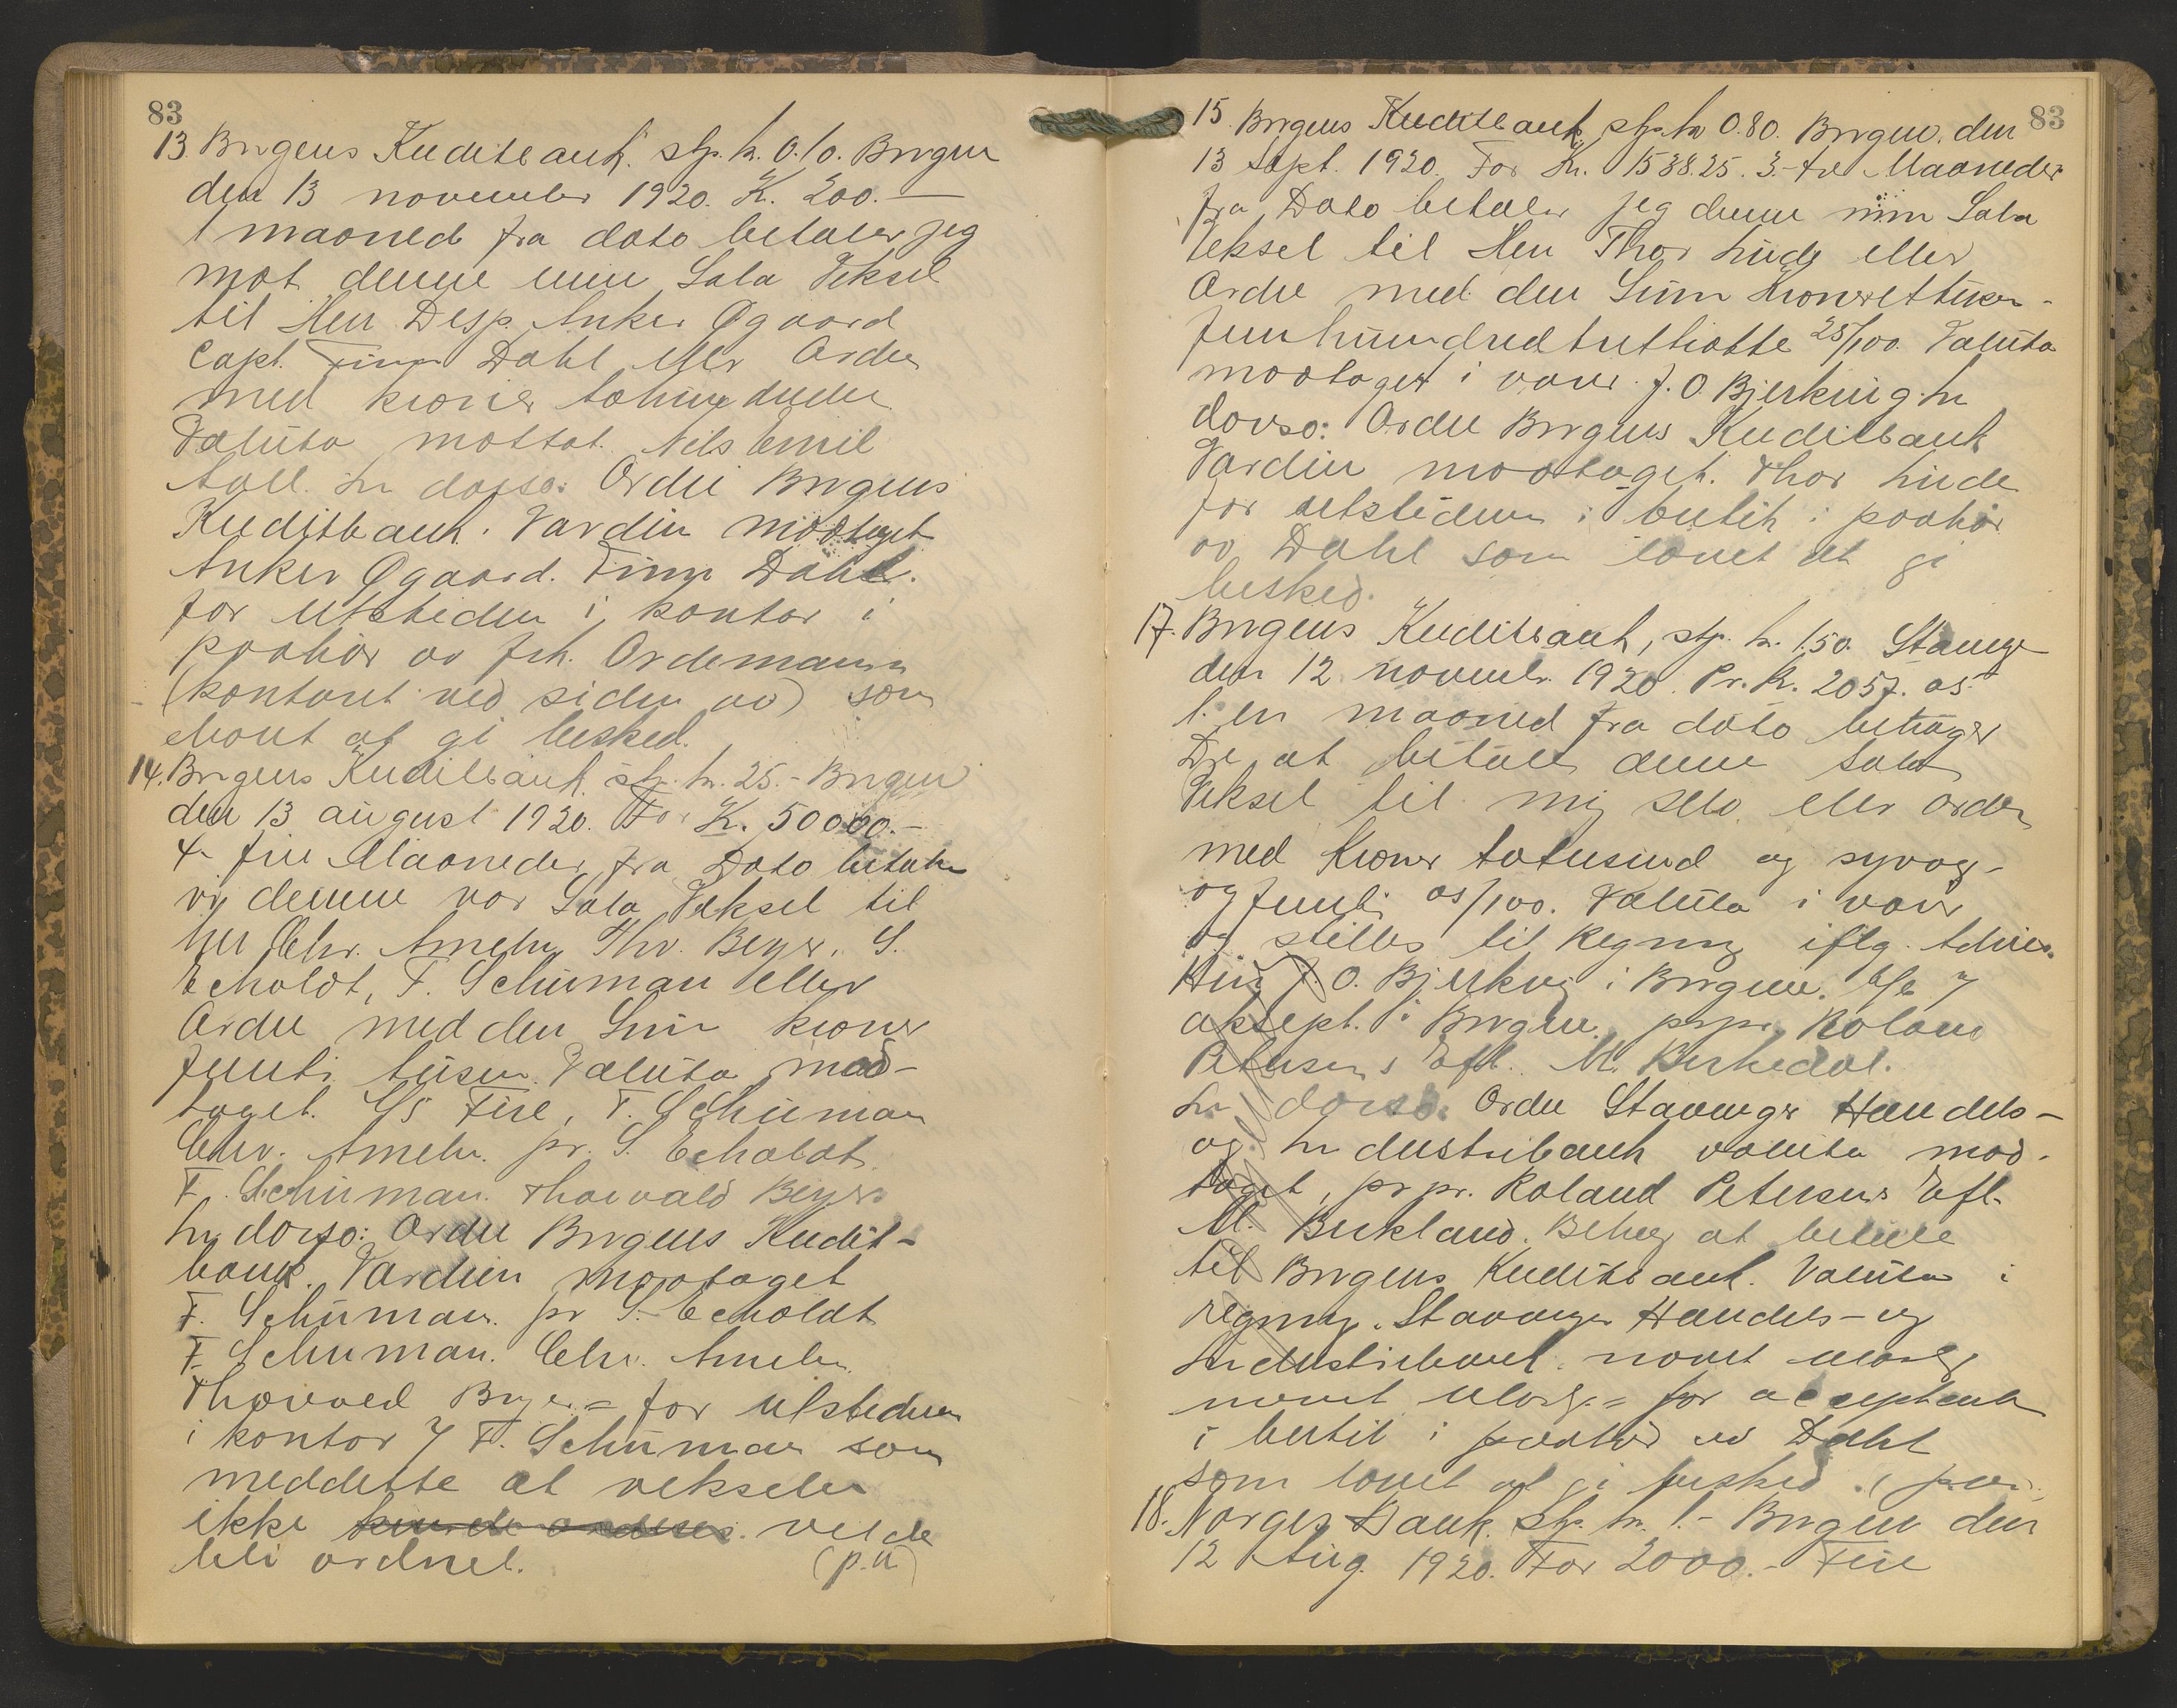 83
13. Bergens Kreditbank. stp. kr. 0.10. Bergen
den 13 november 1920. K. 200.—
1 maaned fra dato betaler jeg
mot denne min Sola Veksel
til Herr Desp. Anker Øgaard
Capt. Finn Dahl eller Ordre
med kroner tohundrede
Valuta mottat. Nils Emil
Aall. In dorso: Ordre Bergens
Kreditbank. Værdien modtaget
Anker Øgaard. Finn Dahl.
for utstederen i kontor i
paahør av frk. Ordemann
(kontoret ved siden av) som
lovet at gi besked.
14. Bergens Kreditbank. stp. kr. 25.- Bergen
den 13 august 1920. For K. 50000.-
4 fire Maaneder fra Dato betaler
vi denne vor Sola Veksel til
Chr. Ameln, Thv. Beyer, S.
Echoldt, F. Schuman eller
Ordre med den Sum kroner
femti tusen. Valuta mod-
taget. A/S Fire, F. Schuman
Chr. Ameln. pr. S. Echoldt.
F. Schuman. Thorvald Beyer.
In dorso: Ordre Bergens Kredit-
bank. Værdien modtaget
F. Schuman. pr S. Echoldt
F. Schuman. Chr. Ameln.
Thorvald Beyer. = for utstederen
i kontor F. Schuman som
meddelte at vekselen
ikke vilde
bli ordnet. (p.a.)
83
15. Bergens Kreditbank, stp. kr 0.80. Bergen, den
13 Sept. 1920. For Kr. 1538.25. 3.- tre Maaneder
fra Dato betaler jeg denne min Sola
Veksel til Herr Thor Lude eller
Ordre med den Sum Kroner ettusen-
femhundredtrettiotte 25/100. Valuta
modtaget i varer. J. O. Bjerkvig. In
dorso: Ordre Bergens Kreditbank
Værdien modtaget. Thor Lude
for utstederen i butik i paahør
av Dahl som lovet at gi
besked.
17. Bergens Kreditbank, stp. kr. 1.50. Stavanger
den 12 novembr. 1920. Pr. K. 2057.05
1. en maaned fra dato behager
De at betale denne Sola
Veksel til mig selv eller ordre
med Kroner totusind og syvog-
ogfemti 05/100. Valuta i varer
og stilles til Regning iflg. Advis.
Herr J. O. Bjerkvig i Bergen.
aksept. i Bergen. pr.pr. Roland
Petersens Eftf. M. Birkedal.
In dorso: Ordre Stavanger Handels-
og Industribank valuta mod-
taget, pr pr. Roland Petersens Eftf.
M. Birkland. Behag at betale
til Bergens Kreditbank. Valuta i
regning. Stavanger Handels- og
Industribank. navnet ulæselig
navnet ulæselig. = for acceptanten
i butik i paahør av Dahl
som lovet at gi besked. (p.a.)
18. Norges Bank. Stp. kr. 1.- Bergen den
12 Aug. 1920. For 2000.- Fire